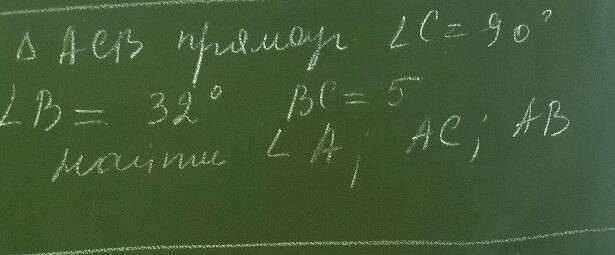 Δ ACB прямоуг. ∠C = 90°
∠B = 32° BC = 5
найти ∠A; AC; AB